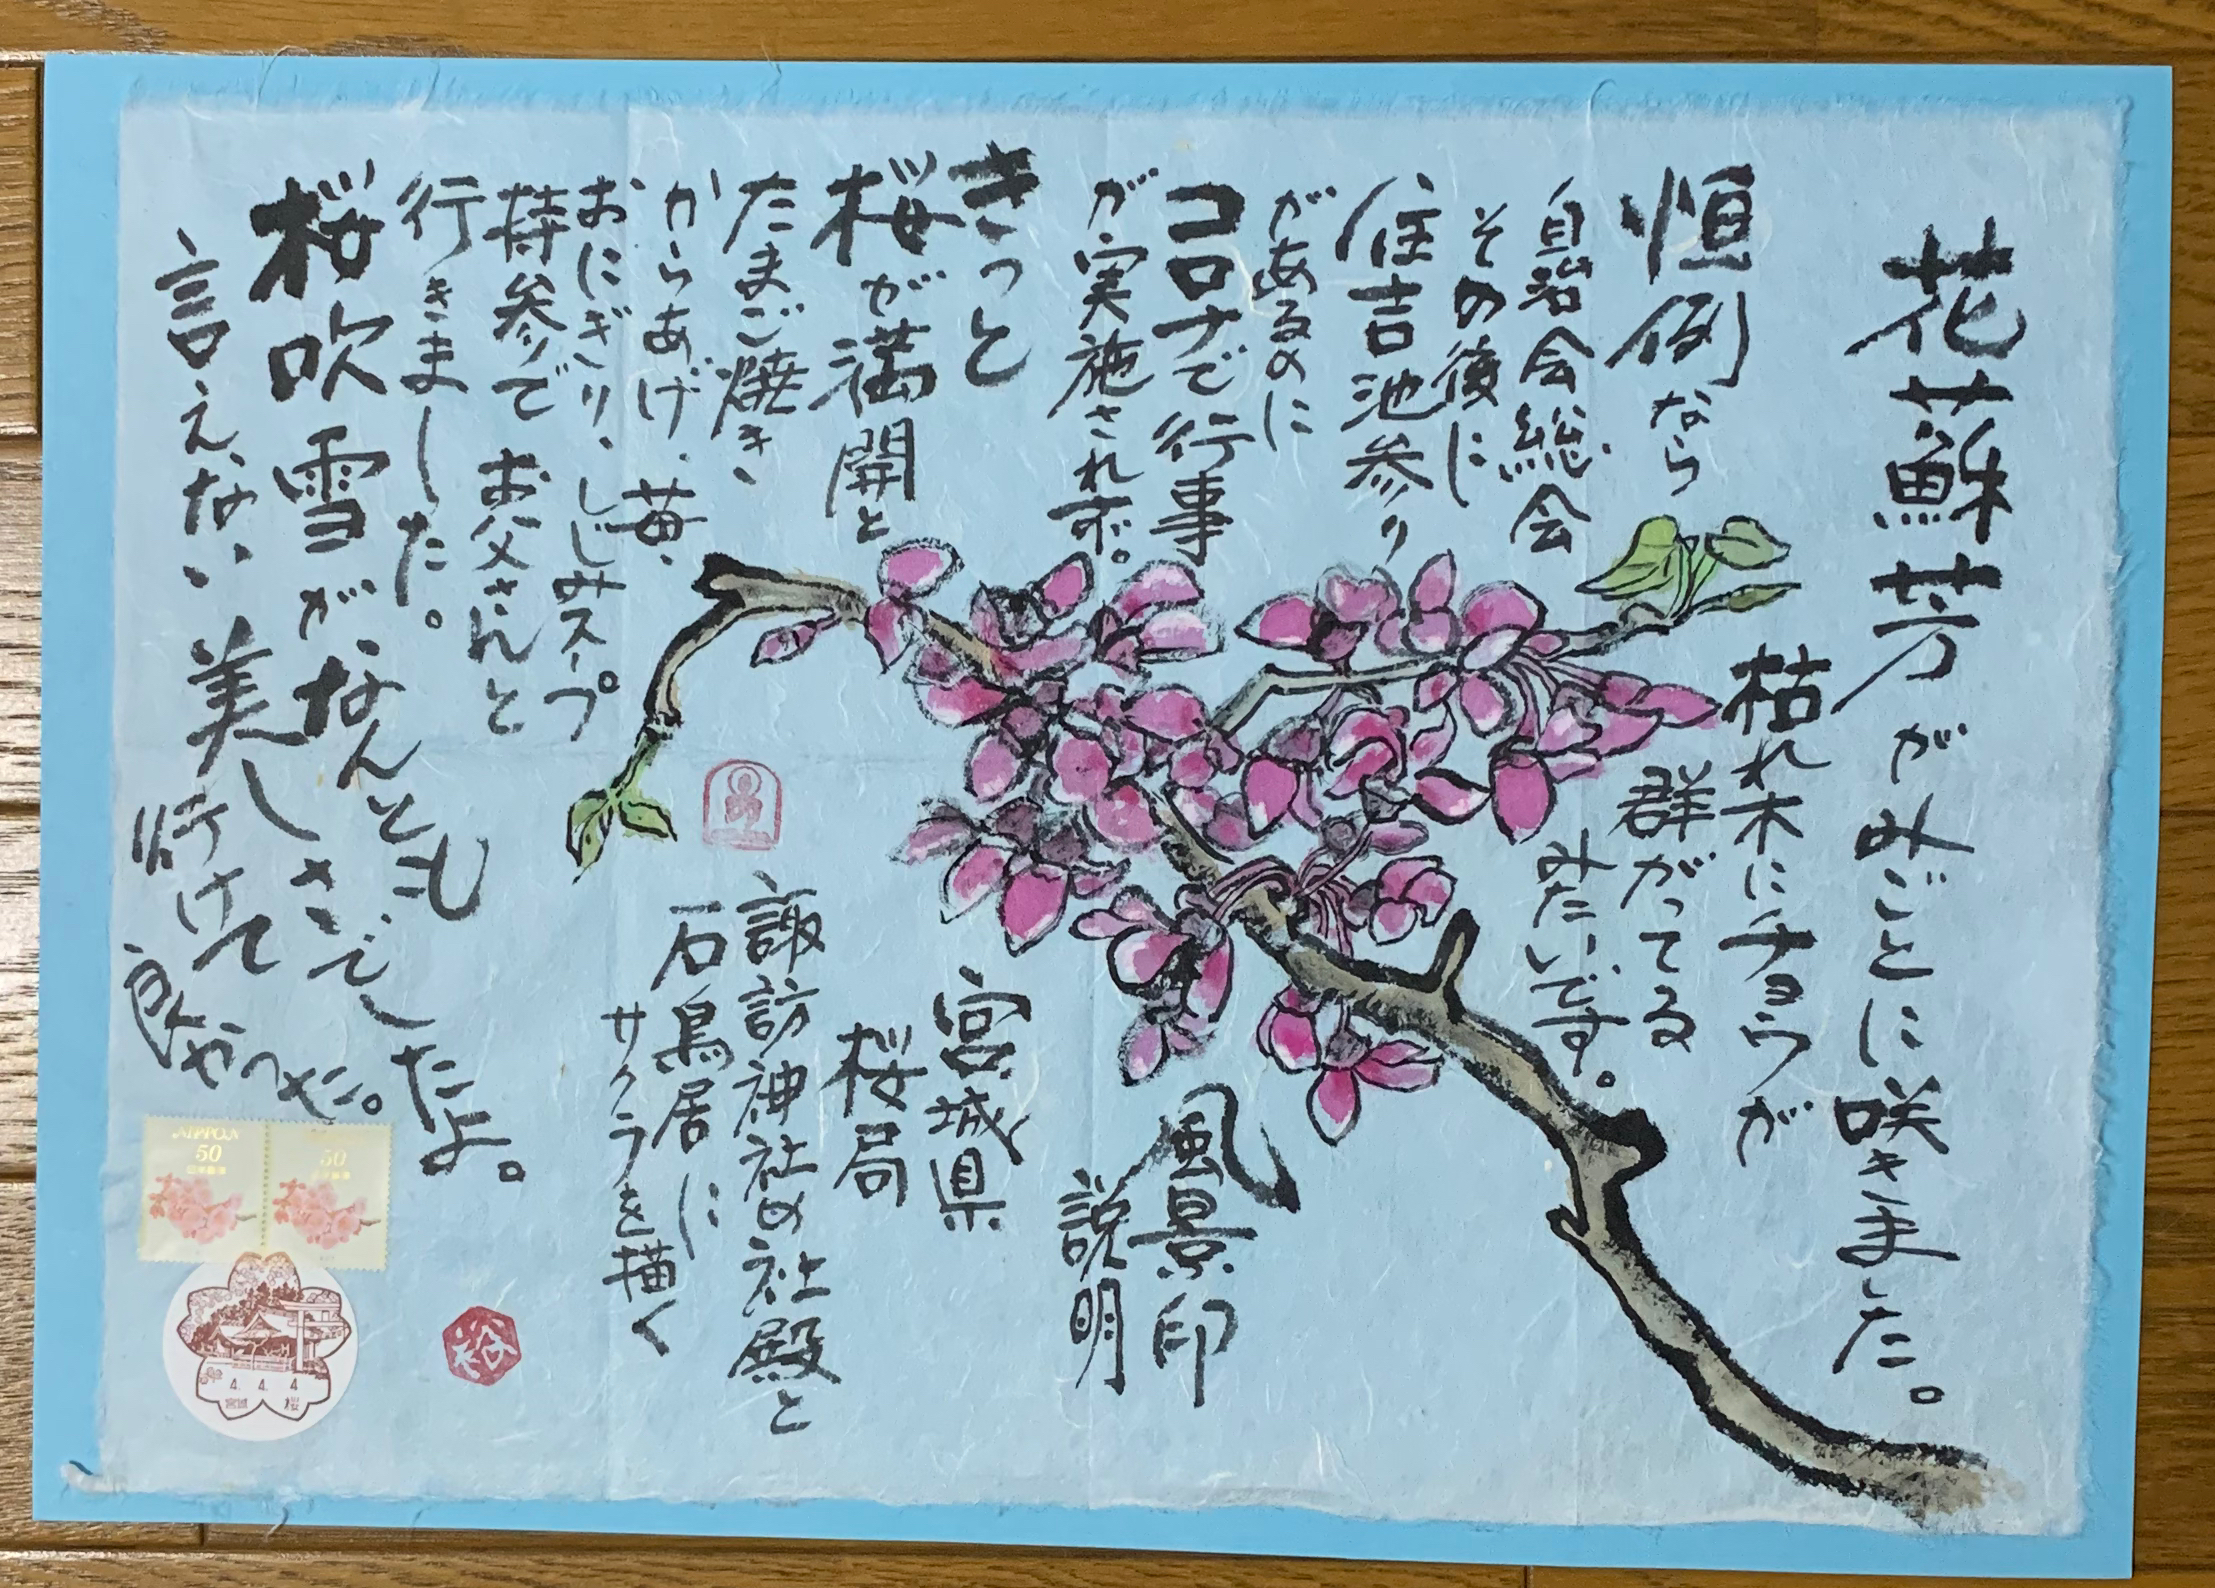 花蘇芳がみごとに咲きました。
枯れ木にチョウが
群がってる
みたいです。
恒例なら
自治会総会
その後に
住吉池参り
があるのに
コロナで行事
が実施されず。
きっと
桜が満開と
たまご焼き、
からあげ、苺、
おにぎり、しじみスープ
持参でお父さんと
行きました。
桜吹雪がなんとも
言えない美しさでしたよ。
行けて
良かったです。
風景印
説明
宮城県
桜局
諏訪神社の社殿と
石鳥居に
サクラを描く
NIPPON
50
日本郵便
50
4.4.4
宮城 桜
裕